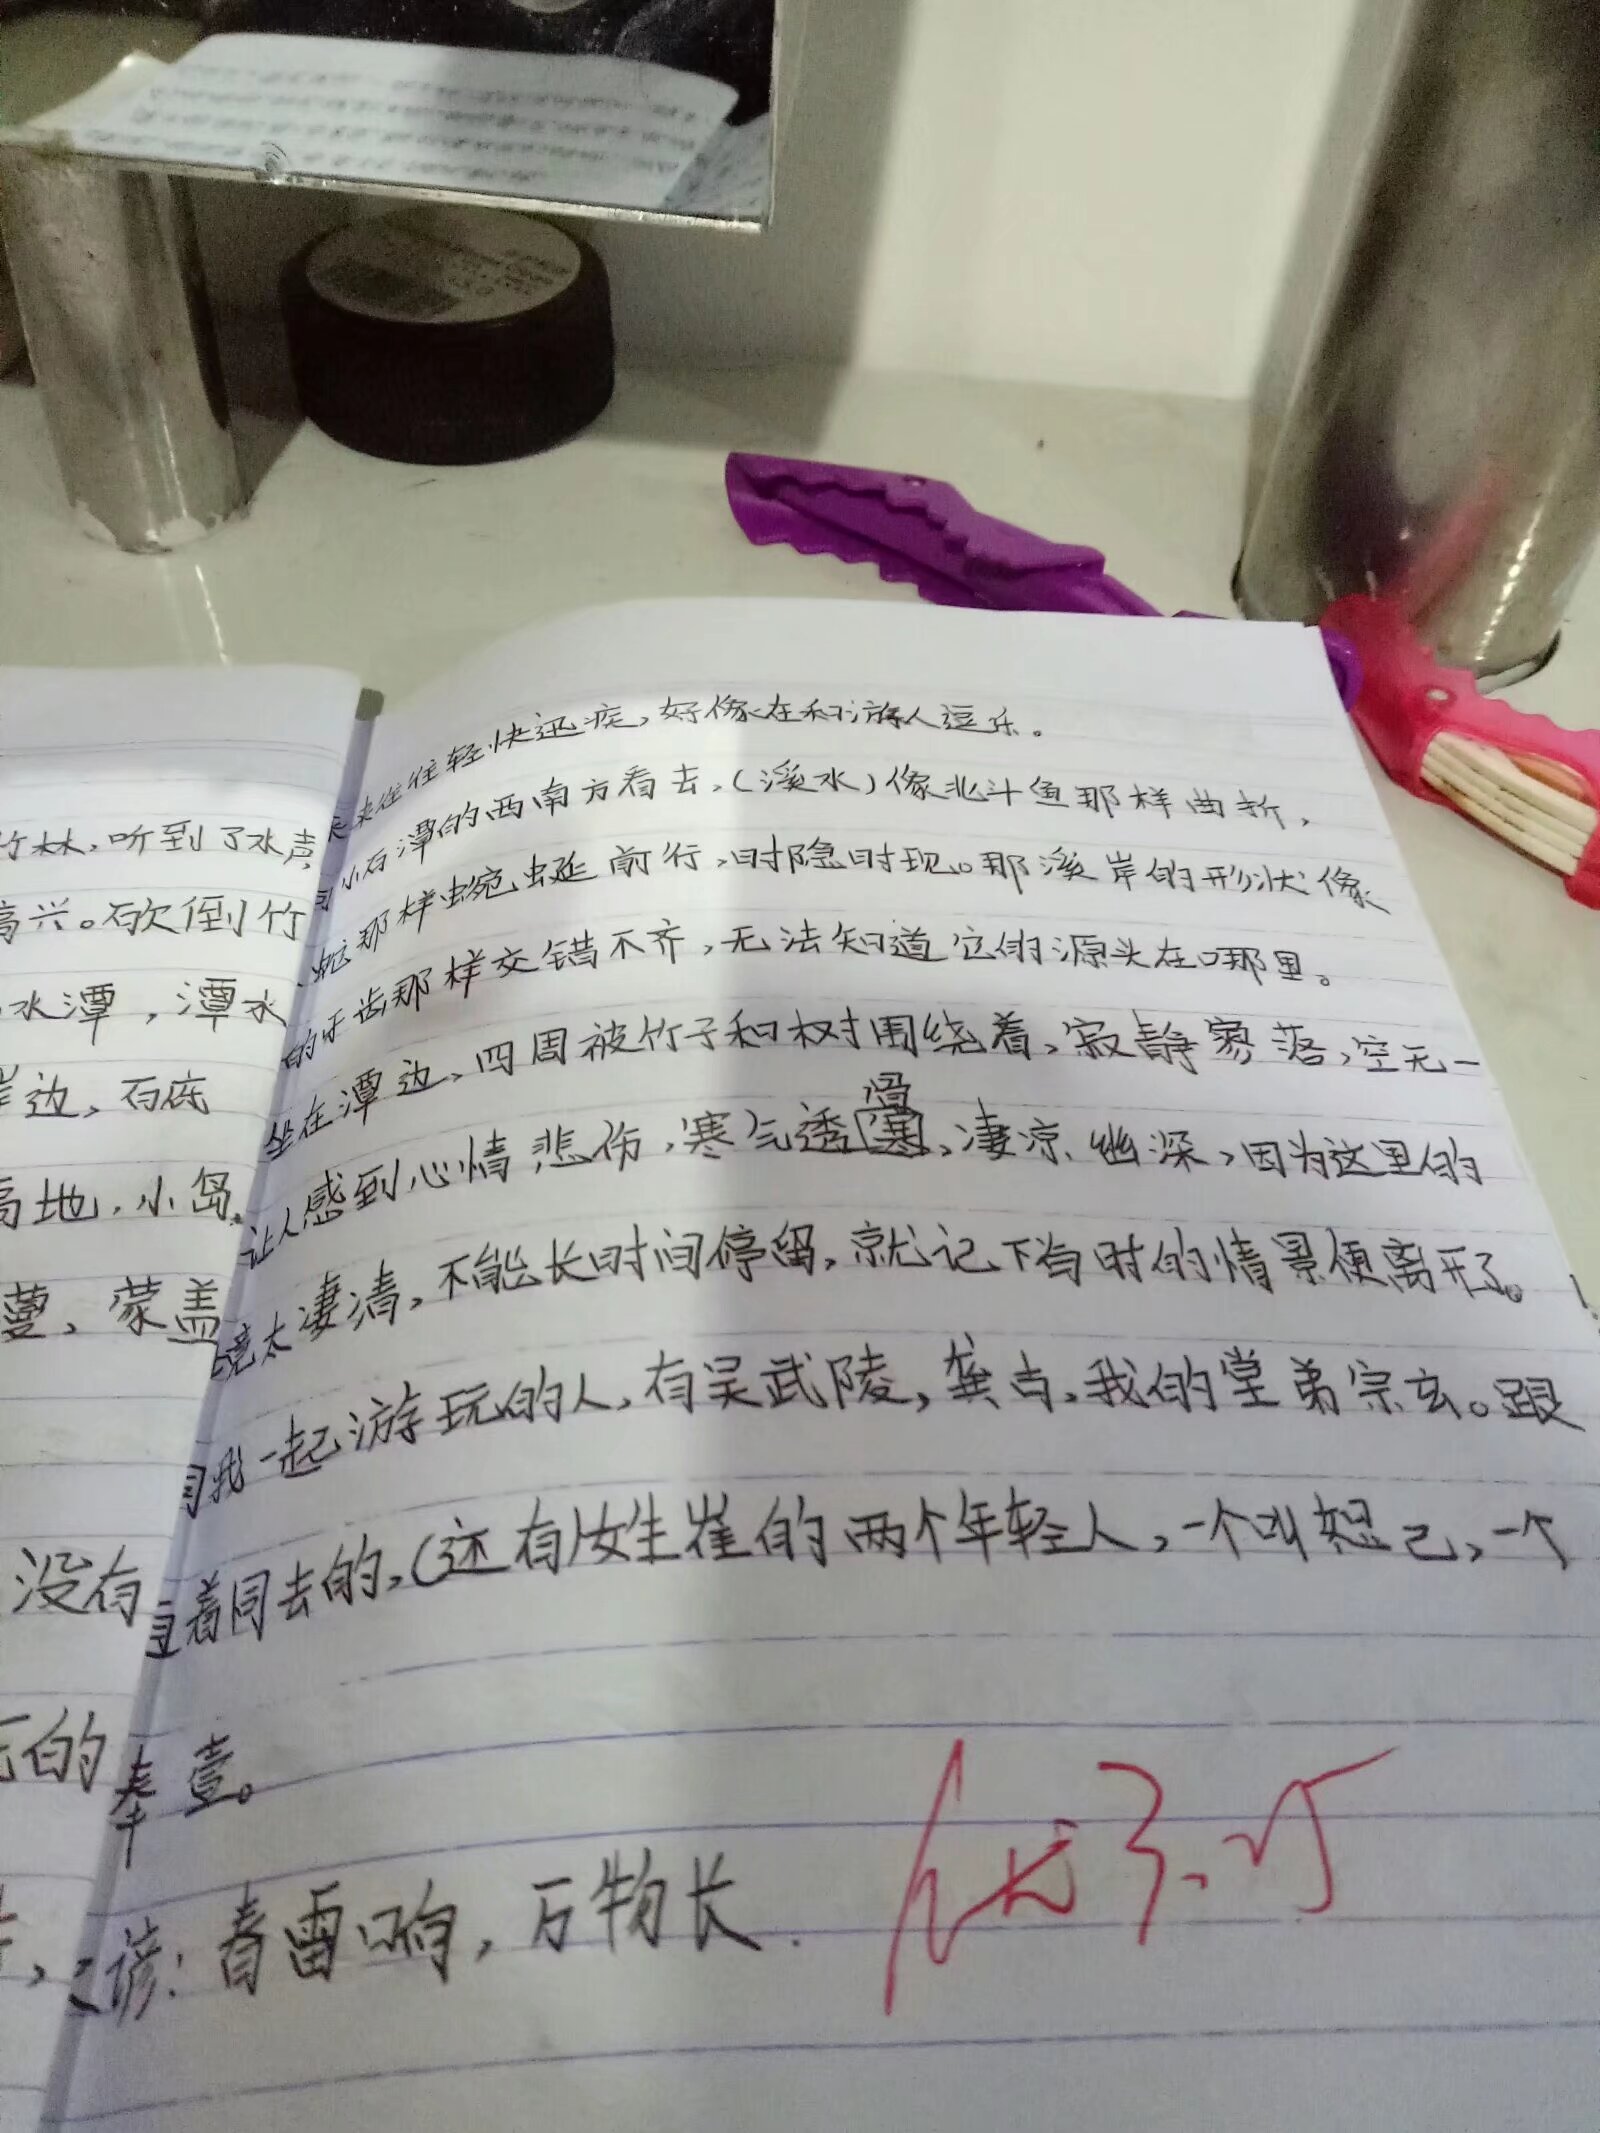 竹林，听到了水声
高兴。砍倒竹
水潭，潭水
岸边，石底
高地，小岛
蔓，蒙盖
没有
的
来往往轻快迅疾，好像在和游人逗乐。
向小石潭的西南方看去，（溪水）像北斗鱼那样曲折，
蛇那样蜿蜒前行，时隐时现。那溪岸的形状像
的牙齿那样交错不齐，无法知道它的源头在哪里。
坐在潭边，四周被竹子和树围绕着，寂静寥落，空无一
让人感到心情悲伤，寒气透骨，凄凉、幽深，因为这里的
境太凄清，不能长时间停留，就记下当时的情景便离开了。
同我一起游玩的人，有吴武陵，龚古，我的堂弟宗玄。跟
着同去的，（还有）女生崔的两个年轻人，一个叫恕己，一个
奉壹。
谚：春雷响，万物长.
优